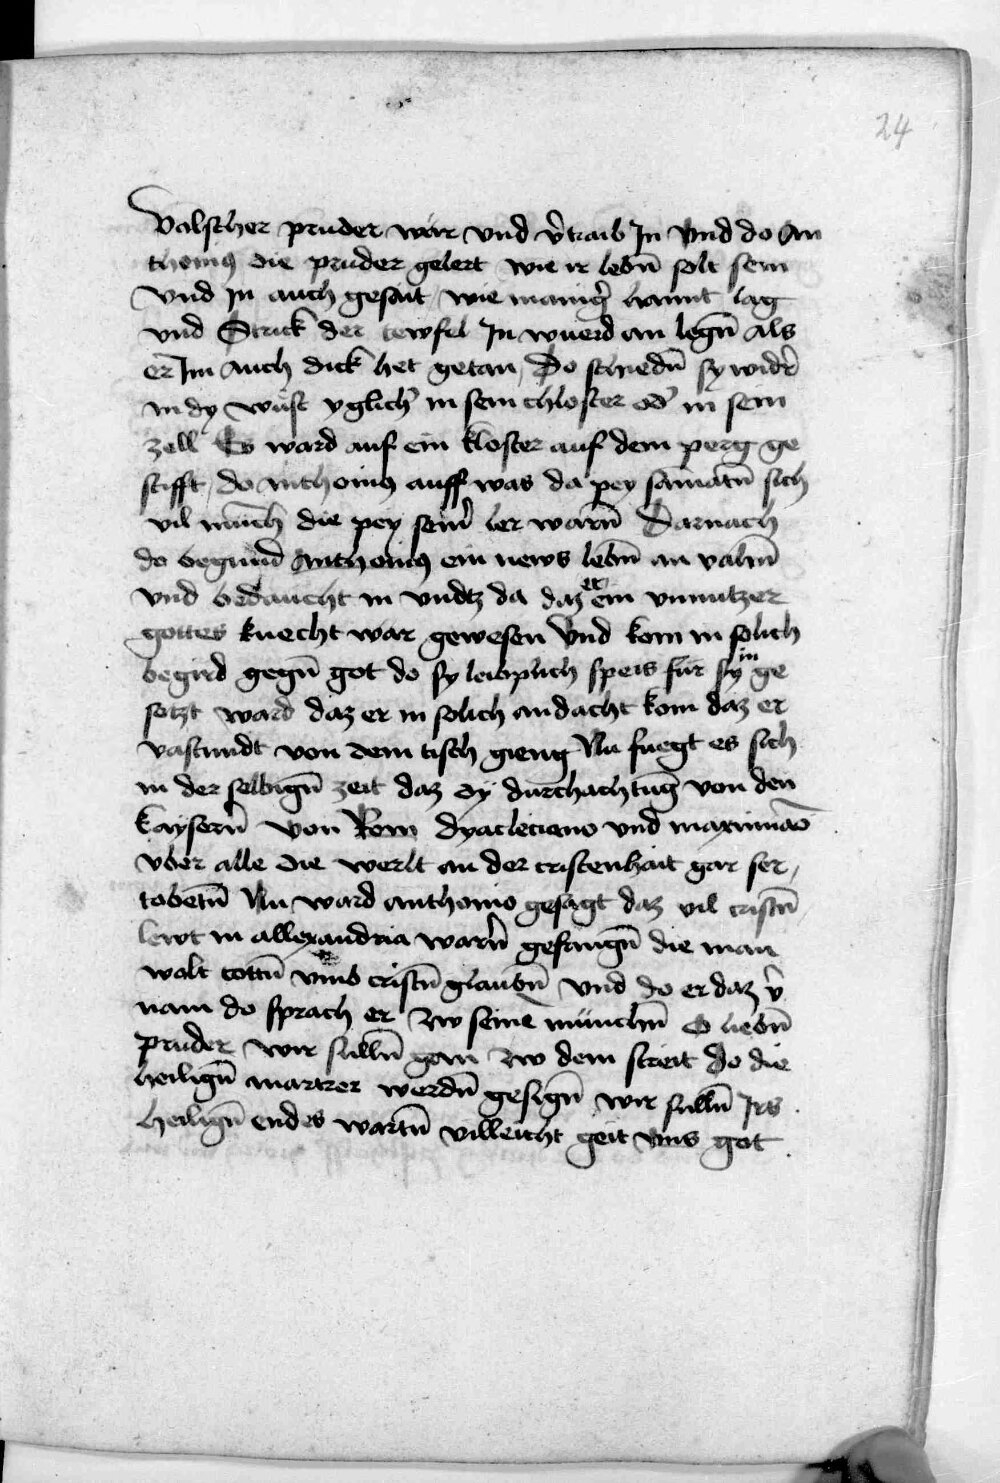 24
valscher pruder war vnd v̉traib In vnd do An
thoniꝯ die pruder gelert wie ir lebn̄ solt sein
vnd In auch gesait wie manig̉ hannt lag
vnd Strick der tewfel In wuerd an legn̄ Als
er Im Auch dick het getan / Do schiedn̄ sy wid̉
in dy wüst yglich̉ in sein chloster od̉ in sein
zell Es ward auf ein kloster auf dem perg ge
stifft / do Anthoniꝯ auff was da pey samatn̄ sich
vil münch die pey sein̉ ler warn̄ Darnach
do begund Anthoniꝯ ein news lebn̄ an vahn̄
vnd bedaucht in vndtz da daz er ein vnnutzer
gottes knecht war gewesen Vnd kom in solich
begird gegn̄ got do sy leiplich speis fur syn in ge
setzt ward daz er in solich andacht kom daz er
vastundt von dem tisch gieng Nu fuegt es sich
in der selbign̄ zeit daz dy durchachtūg von den
kaysern̄ von Rom dyacleciano vnd maximiāo
vber alle die werlt an der cristenhait gar ser /
tobetn̄ Nu ward anthonio gesagt daz vil cristn̄
lewt in allexandria warn̄ gefangn̄ die man
wolt tottn̄ vmb cristn̄ glaubn̄ vnd do er daz v̉
nam do sprach er zw seine münchn̄ O liebn̄
pruder wir sulln̄ gem zw dem streit do die
heilign̄ martrer werdn̄ gesign̄ wir sulln̄ Irs
heilign̄ endes wartn̄ villeicht geit vns got